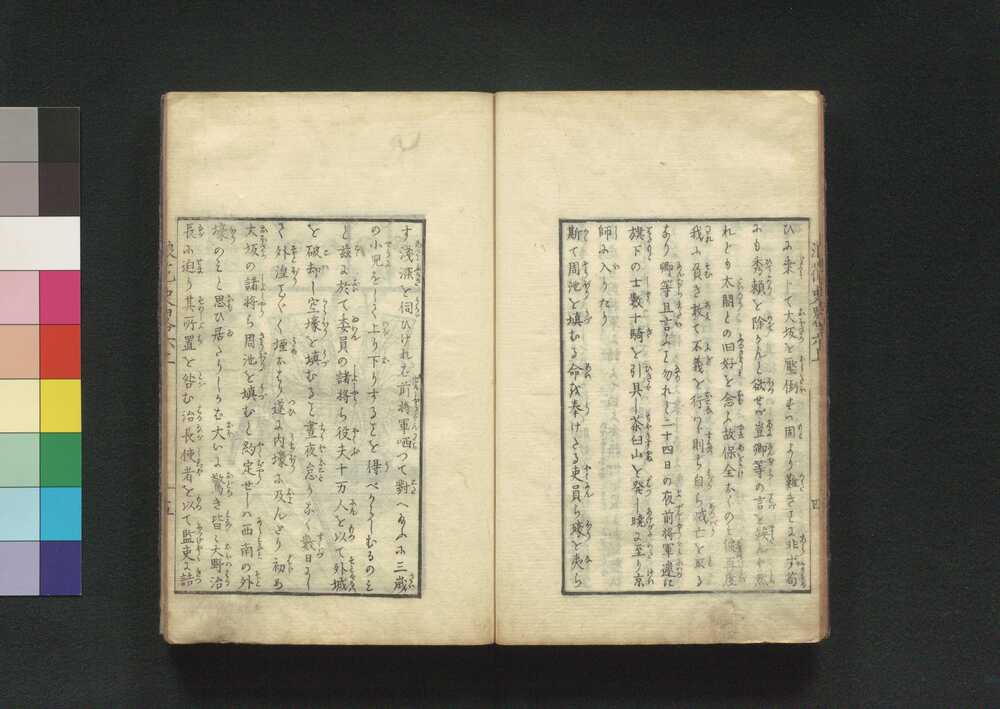 ひに乗して大坂を壓倒すは固より難きことに非ず苟
にも秀頼を除かんと欲せば豈卿等の言を俟んや然
れども太閤との旧好を念ふ故保全なくのと彼再度
我に負き敢て不義を行はゞ則ち自ら滅亡を取る
あり卿等且言ふこと勿れと二十四日の夜前将軍遽に
旗下の士数十騎を引具し茶臼山を発し暁に至り京
師に入りたり
斯て周池を填むる命を奉けたる吏員ら壕を夷ら
す浅深を伺ひけれむ前将軍哂つて對へるふに三歳
の小児をして上り下りすることを得べからしむるのミ
と茲に於て委員の諸将ら役夫十万人を以て外城
を破却し空壕を填むること晝夜怠りなく数日にし
て外湟ことごとく堙れより遂に内壕に及んとり初め
大坂の諸将ら周池を填むと約定せしハ西南の外
壕のミと思ひ居たりしかむ大いに驚き皆々大野治
長に迫り其所置を咎む治長使者を以て監吏に詰